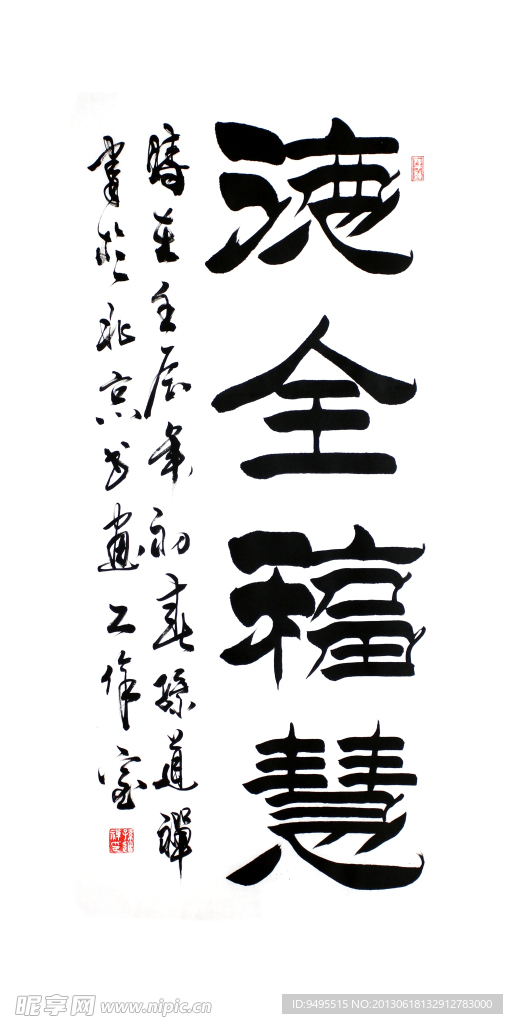 德全福慧
時在壬辰年初春孫道禪
書於北京书畫工作室
昵享网 www.nipic.cn
ID:9495515 NO:20130618132912783000